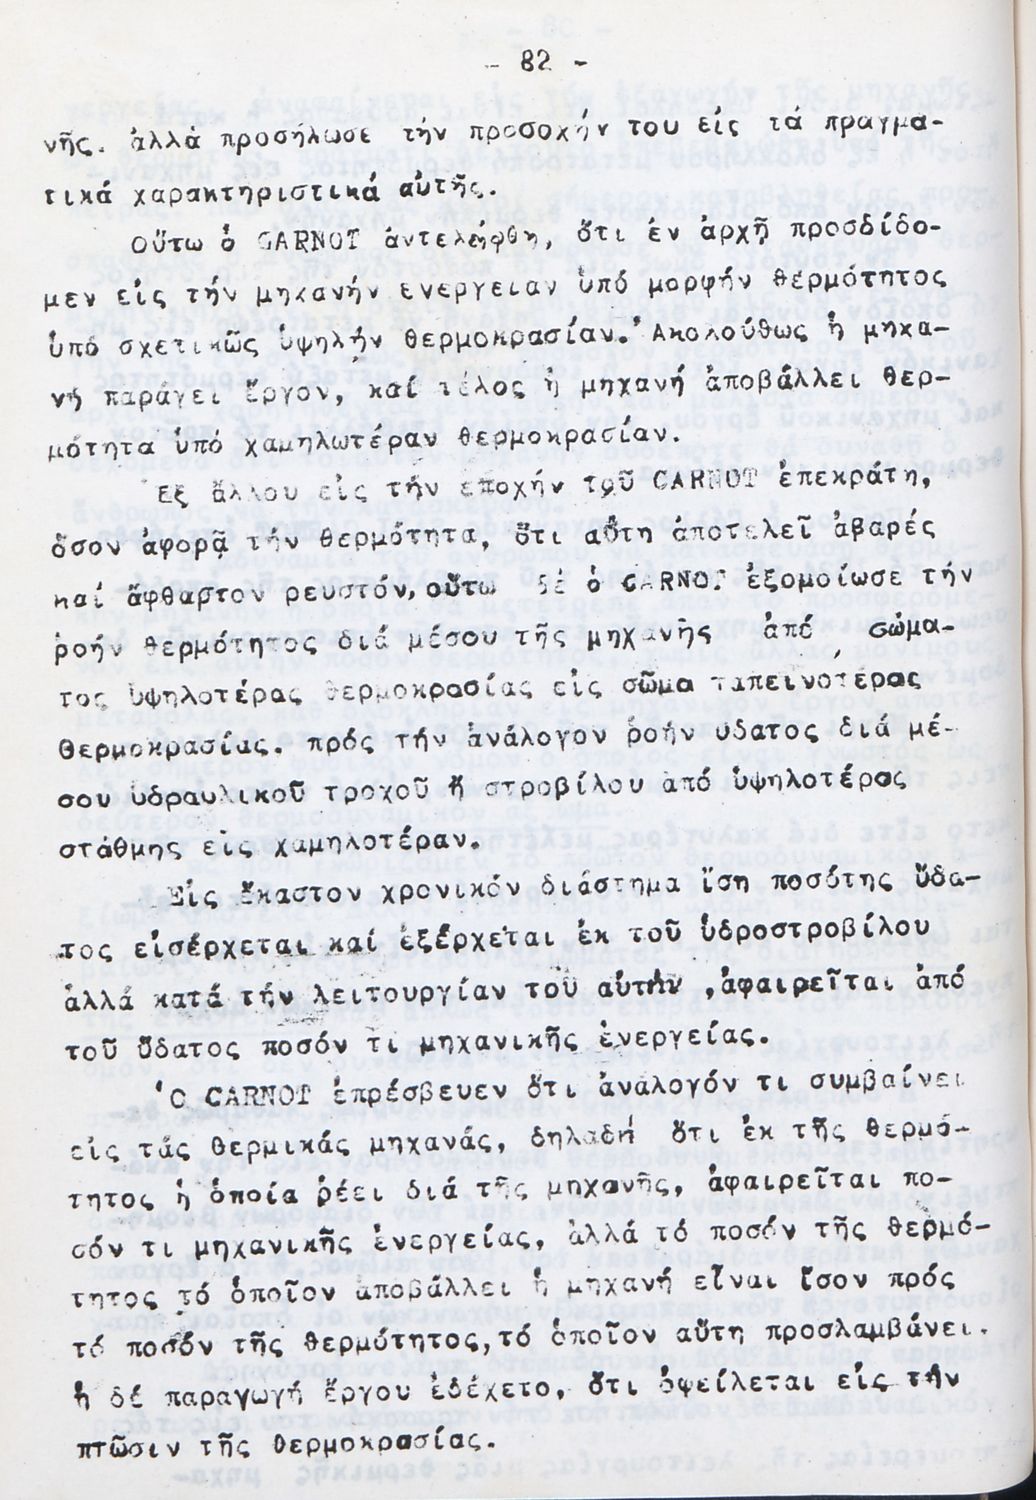 - 82 -
νῆς. ἀλλά προσήλωσε τήν προσοχήν του εἰς τά πραγμα-
τικά χαρακτηριστικά αὐτῆς.
Οὕτω ὁ CARNOT ἀντελήφθη, ὅτι ἐν ἀρχῇ προσδίδο-
μεν εἰς τήν μηχανήν ενεργειαν ὑπό μορφήν θερμότητος
ὑπό σχετικῶς ὑψηλήν θερμοκρασίαν. Ἀκολούθως ἡ μηχα-
νή παράγει ἔργον, καί τέλος ἡ μηχανή ἀποβάλλει θερ-
μότητα ὑπό χαμηλωτέραν θερμοκρασίαν.
Ἐξ ἄλλου εἰς τήν ἐποχήν τοῦ CARNOT ἐπεκράτη,
ὅσον ἀφορᾷ τήν θερμότητα, ὅτι αὕτη ἀποτελεῖ ἀβαρές
καί ἄφθαρτον ρευστόν, οὕτω δέ ὁ CARNOT ἐξομοίωσε τήν
ῥοήν θερμότητος διά μέσου τῆς μηχανῆς ἀπό σώμα-
τος ὑψηλοτέρας θερμοκρασίας εἰς σῶμα ταπεινοτέρας
θερμοκρασίας. πρός τήν ἀνάλογον ῥοήν ύδατος διά μέ-
σου ὑδραυλικοῦ τροχοῦ ἤ στροβίλου ἀπό ὑψηλοτέρας
στάθμης εἰς χαμηλοτέραν.
Εἰς ἕκαστον χρονικόν διάστημα ἴση ποσότης ὕδα-
τος εἰσέρχεται καί ἐξέρχεται ἐκ τοῦ ὑδροστροβίλου
ἀλλά κατά τήν λειτουργίαν τοῦ αὐτήν ,ἀφαιρεῖται ἀπό
τοῦ ὕδατος ποσόν τι μηχανικῆς ἐνεργείας.
Ὁ CARNOT ἐπρέσβευεν ὅτι ἀνάλογόν τι συμβαίνει
εἰς τάς θερμικάς μηχανάς, δηλαδή ὅτι ἐκ τῆς θερμό-
τητος ἡ ὁποία ῥέει διά τῆς μηχανῆς, ἀφαιρεῖται πο-
σόν τι μηχανικῆς ἐνεργείας, ἀλλά τό ποσόν τῆς θερμό-
τητος τό ὁποῖον ἀποβάλλει ἡ μηχανή εἶναι ἴσον πρός
τό ποσόν τῆς θερμότητος, τό ὁποῖον αὕτη προσλαμβάνει.
ἡ δέ παραγωγή ἔργου ἐδέχετο, ὅτι ὀφείλεται εἰς τήν
πτῶσιν τῆς θερμοκρασίας.